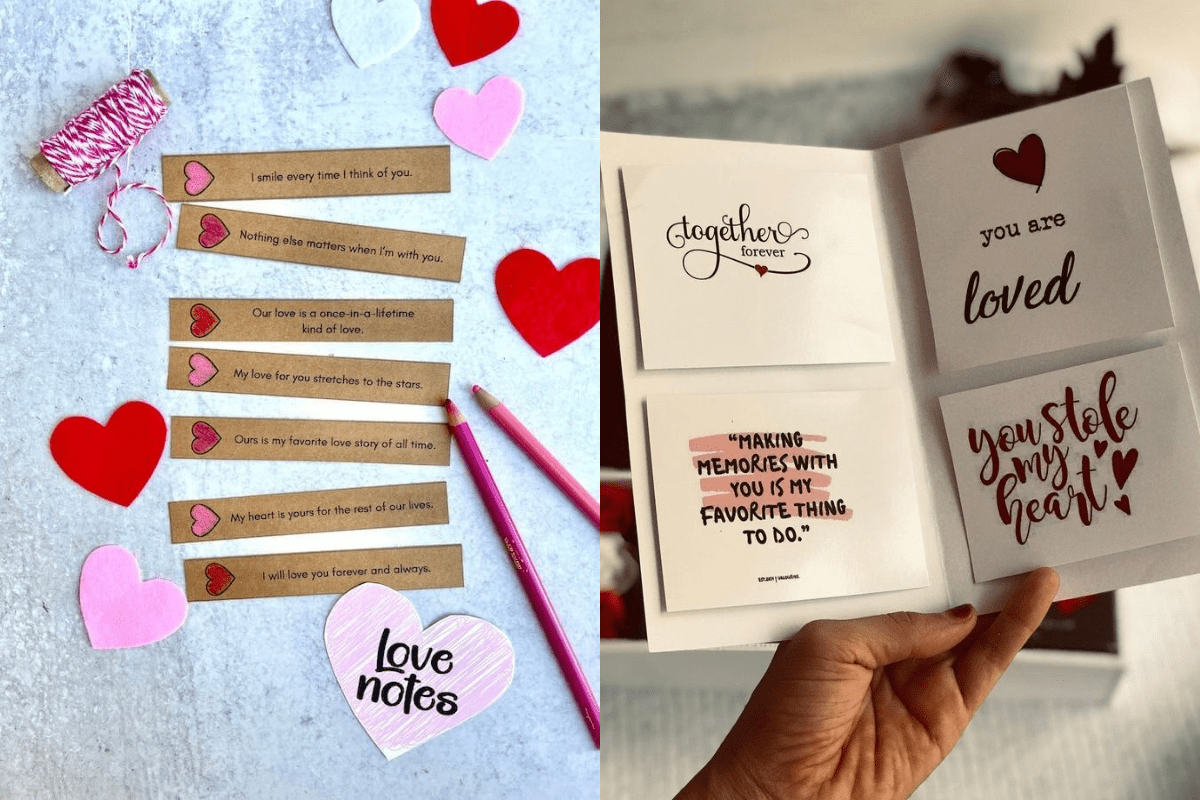 I smile every time I think of you.
Nothing else matters when I'm with you.
Our love is a once-in-a-lifetime
kind of love.
My love for you stretches to the stars.
Ours is my favorite love story of all time.
My heart is yours for the rest of our lives.
I will love you forever and always.
Love
notes
together
forever
you are
loved
"MAKING
MEMORIES WITH
YOU IS MY
FAVORITE THING
TO DO."
you stole
my
heart